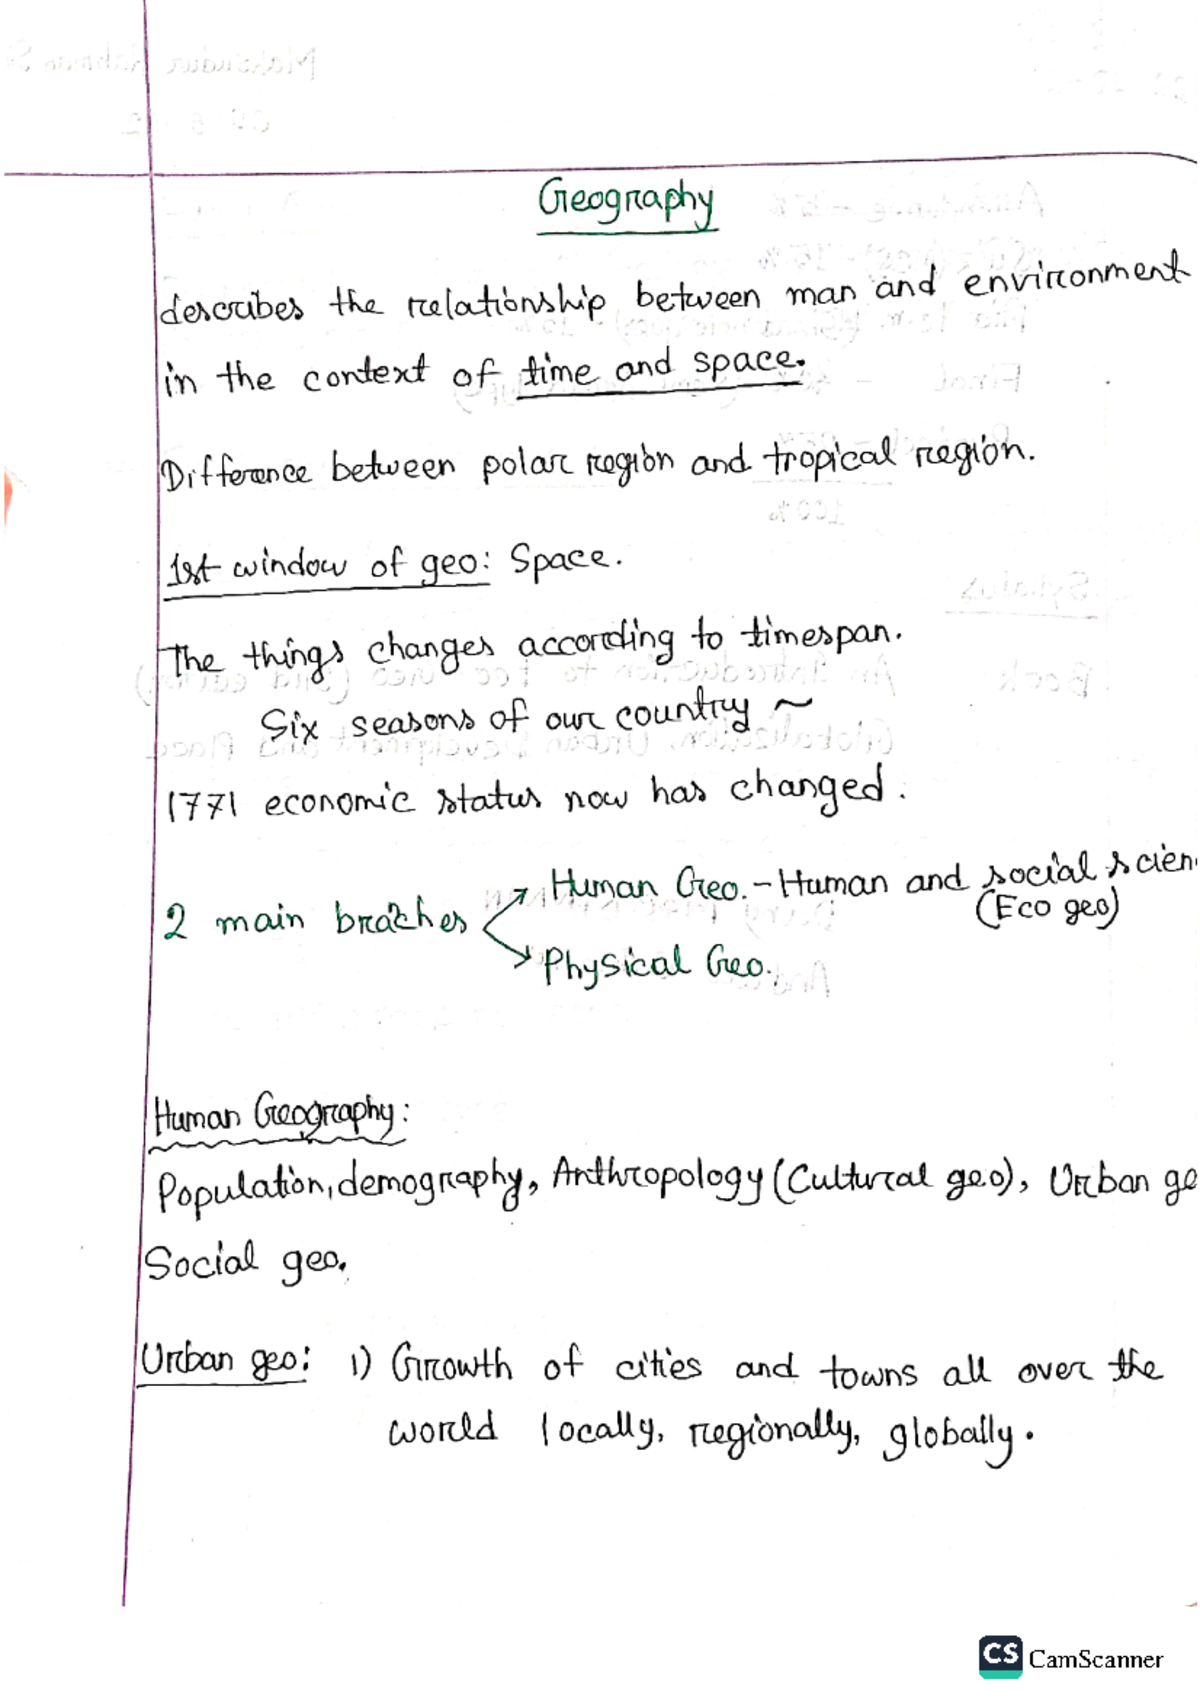 Geography
describes the relationship between man and environment
in the context of time and space.
Difference between polar region and tropical region.
1st window of geo: Space.
The things changes according to timespan.
Six seasons of our country ~
1771 economic status now has changed.
2 main braches
Human Geo. - Human and social scien
(Eco geo)
Physical Geo.
Human Geography:
Population, demography, Anthropology (Cultural geo), Urban ge
Social geo.
Urban geo: 1) Growth of cities and towns all over the
world locally, regionally, globally.
CS CamScanner